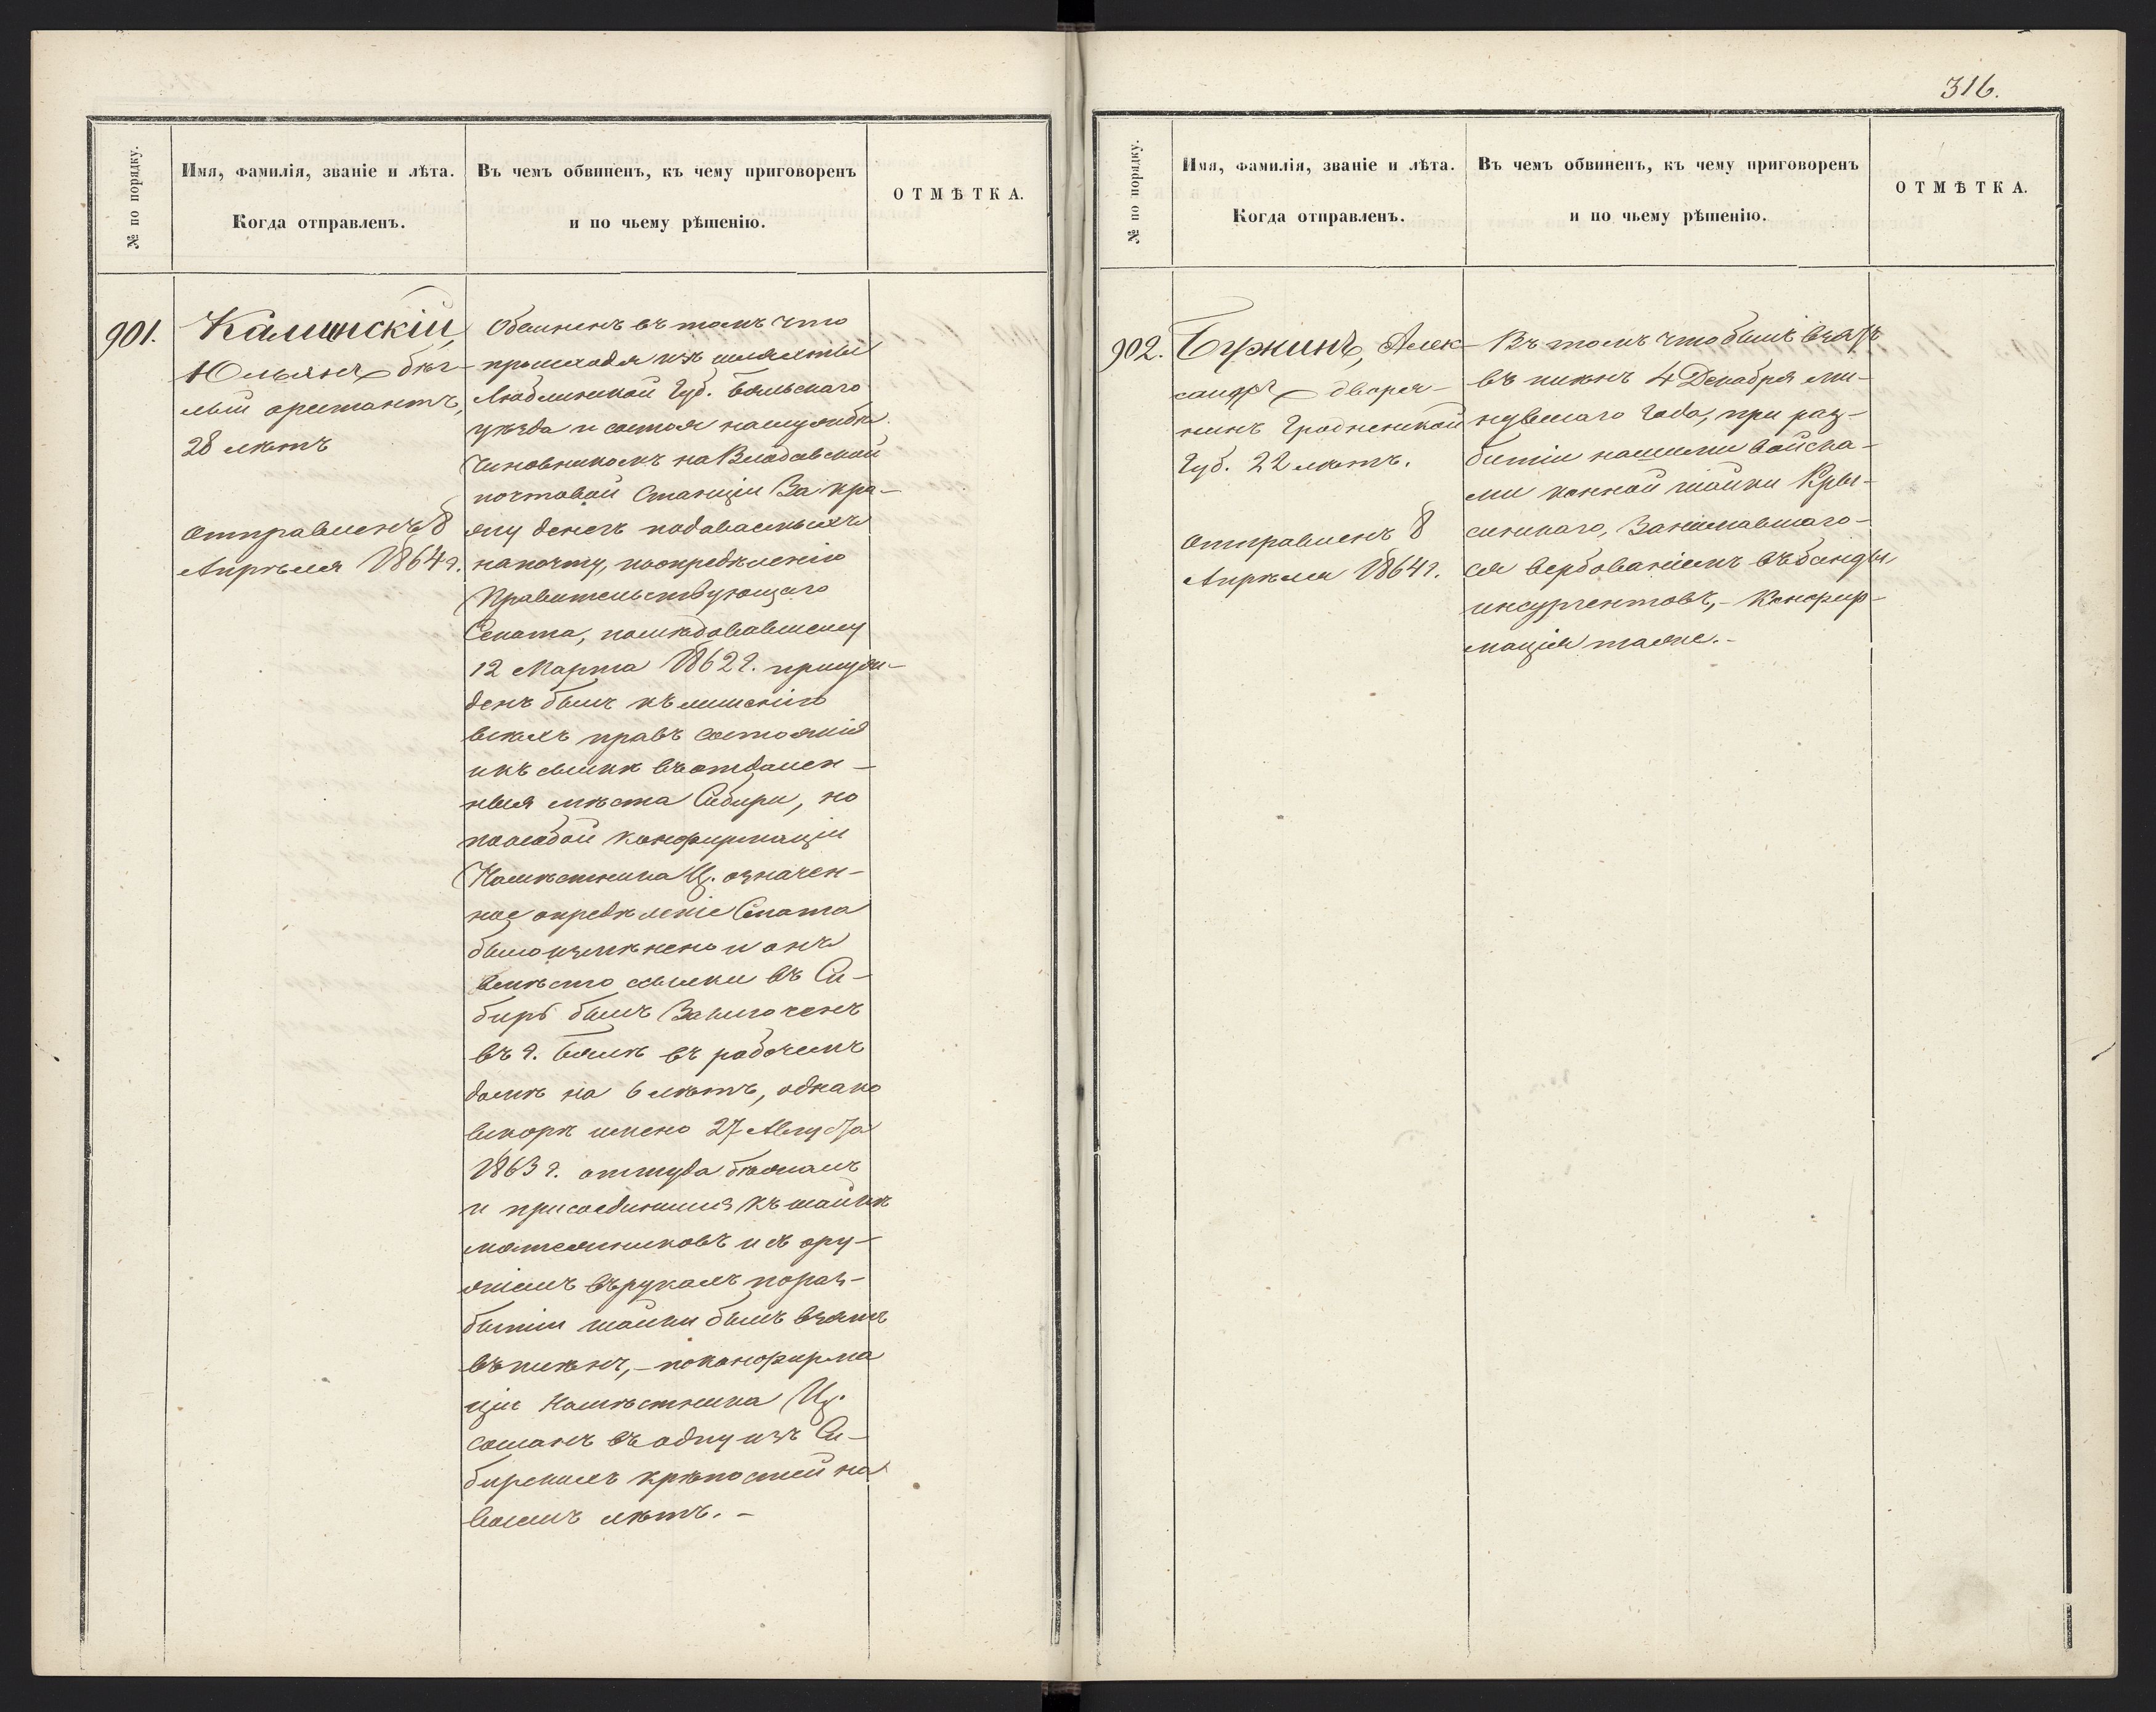 № по порядку.
Имя, фамилія, званіе и лѣта.
Когда отправленъ.
Въ чемъ обвиненъ, къ чему приговоренъ
и по чьему рѣшенію.
ОТМѢТКА.
901.
Калинскій,
Юльянъ бѣг-
лый арестантъ,
28 лѣтъ
Отправленъ 8
Апрѣля 1864 г.
Обвиненъ въ томъ что
происходя изъ шляхты
Люблинской Губ. Бяльскаго
уѣзда и состоя на службѣ
Чиновникомъ на Влодавской
почтовой Станціи За кра-
жу денегъ подаваемыхъ
на почту, по опредѣленію
Правительствующаго
Сената, послѣдовавшему
12 Марта 1862 г. присуж-
денъ былъ къ лишенію
всѣхъ правъ состоянія
и къ ссылкѣ въ отдален-
ныя мѣста Сибири, но
по особой конфирмаціи
Намѣстника Ц. означен-
ное опредѣленіе Сената
было измѣнено и онъ
вмѣсто ссылки въ Си-
бирь былъ Заключенъ
въ г. Бялѣ въ рабочемъ
домѣ на 6 лѣтъ, однако
вскорѣ имено 27 Августа
1863 г. оттуда бѣжалъ
и присоединился къ шайкѣ
мятежниковъ и съ ору-
жіемъ въ рукахъ по раз-
битіи шайки былъ взятъ
въ плѣнъ, - по конфирма
ціи Намѣстника Ц.
сосланъ въ одну изъ Си-
бирскихъ крѣпостей на
восемь лѣтъ. -
316.
№ по порядку.
Имя, фамилія, званіе и лѣта.
Когда отправленъ.
Въ чемъ обвиненъ, къ чему приговоренъ
и по чьему рѣшенію.
ОТМѢТКА.
902.
Бужинъ, Алек-
сандръ дворя-
нинъ Гродненской
Губ. 22 лѣтъ.
Отправленъ 8
Апрѣля 1864 г.
Въ томъ что былъ взятъ
въ плѣнъ 4 Декабря ми-
нувшаго Года, при раз-
битіи нашими войска-
ми конной шайки Кры-
синскаго, Занимавшаго-
ся вербованіемъ въ банды
инсургентовъ, - Конфир-
мація таже. -